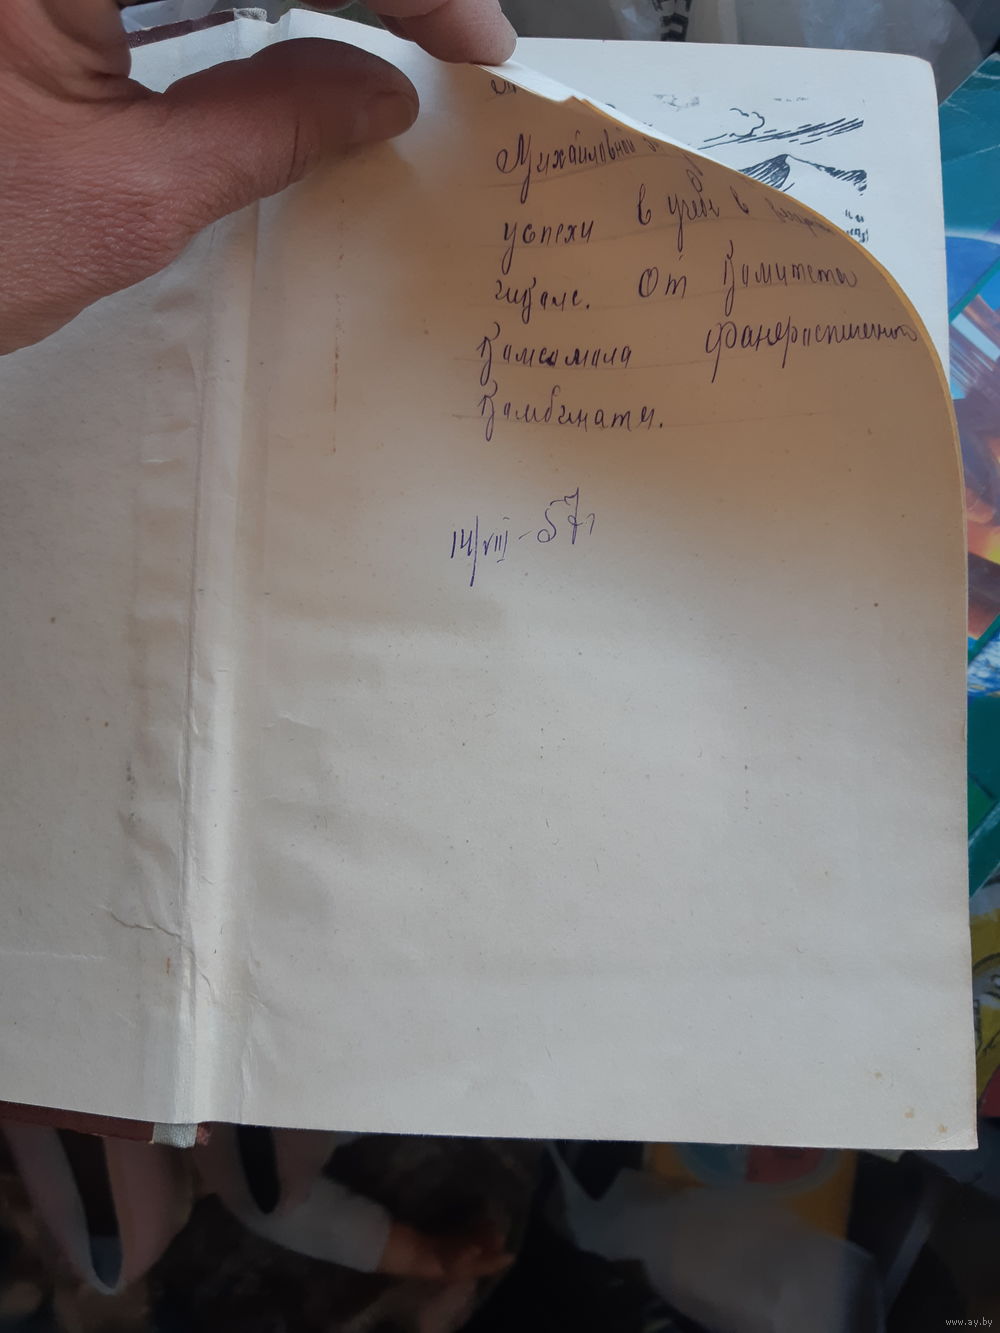 Михайловной за
успехи в учёбе в
школе. От Камитета
Камсамола Фанероспичечного
Камбината.
14/VIII-57г
www.ay.by